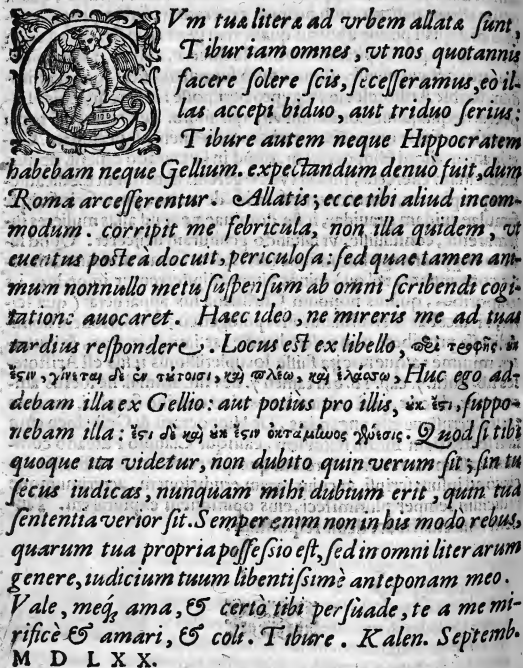 CVm tuæ literæ ad vrbem allatæ sunt,
Tibur iam omnes, vt nos quotannis
facere solere scis, secesseramus, eò il-
las accepi biduo, aut triduo serius:
Tibure autem neque Hippocratem
habebam neque Gellium. expectandum denuò fuit, dum
Roma arcesserentur. Allatis; ecce tibi aliud incom-
modum. corripit me febricula, non illa quidem, vt
euentus posteà docuit, periculosa: sed quae tamen ani-
mum nonnullo metu suspensum ab omni scribendi cogi-
tatione auocaret. Haec ideo, ne mireris me ad tuas
tardius respondere. Locus est ex libello, περὶ τροφῆς. οὐκ
ἔςιν, γίνεται δὲ ἐν τούτοισι, καὶ πλείω, καὶ ἐλάσσω, Huc ego ad-
debam illa ex Gellio: aut potiùs pro illis, οὐκ ἔςι, suppo-
nebam illa: ἔςι δὲ καὶ οὐκ ἔςιν ὀκτάμηνος γένεσις. Quod si tibi
quoque ita videtur, non dubito quin verum sit; sin tu
secus iudicas, nunquam mihi dubium erit, quin tua
sententia verior sit. Semper enim non in his modo rebus,
quarum tua propria possessio est, sed in omni literarum
genere, iudicium tuum libentissimè anteponam meo.
Vale, meq́; ama, & certò tibi persuade, te a me mi-
rificè & amari, & coli. Tibure. Kalen. Septemb.
M D L X X.